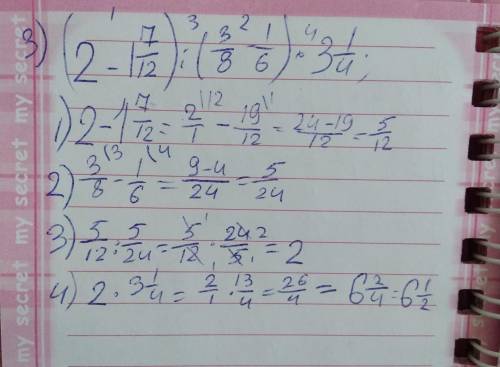 3) (2 - 1 7/12) : (3/8 - 1/6) · 3 1/4;
1) 2 - 1 7/12 = 2/1 \12 - 19/12 \1 = 24-19/12 = 5/12
2) 3/8 \3 - 1/6 \4 = 9-4/24 = 5/24
3) 5/12 : 5/24 = 5/12 · 24/5 = 2
4) 2 · 3 1/4 = 2/1 · 13/4 = 26/4 = 6 2/4 = 6 1/2
my secret my secret my secret